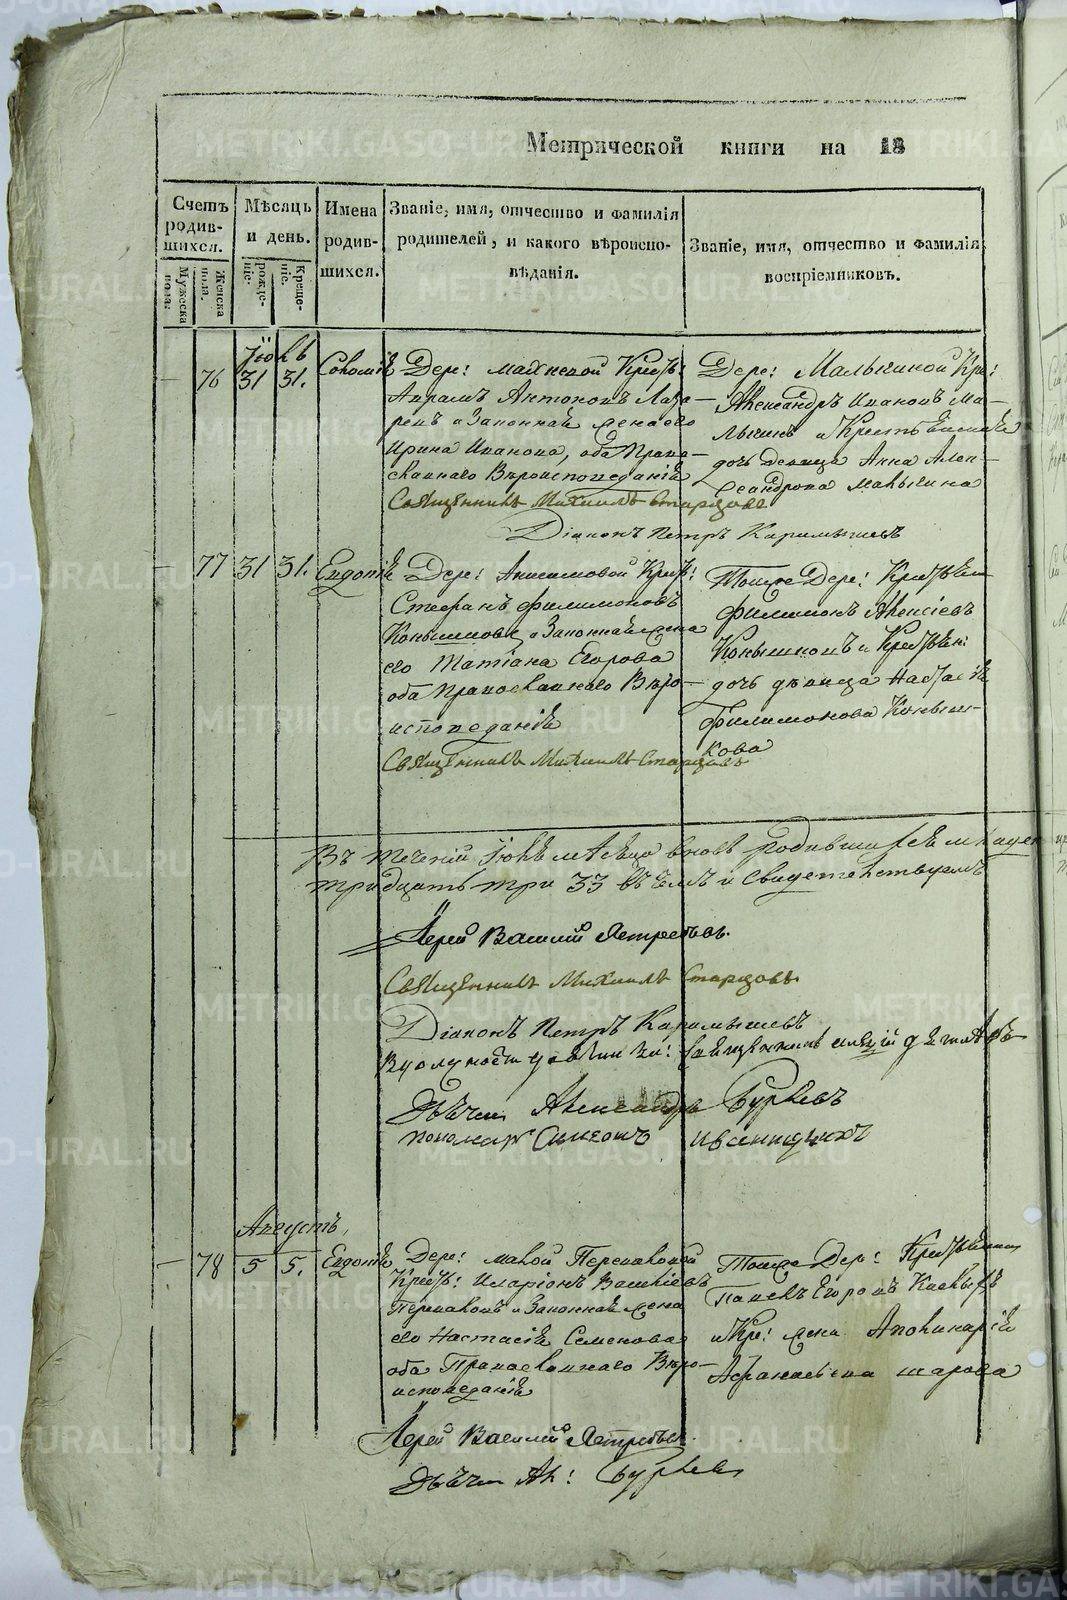 Метрической книги на 18
Счетъ родив-шихся.
Мѣсяцъ и день.
Имена родив-шихся.
Званіе, имя, отчество и фамилія родителей, и какого вѣроиспо-вѣданія.
Званіе, имя, отчество и фамилія воспріемниковъ.
Мужеска пола.
Женска пола.
рожде-ніе.
Креще-ніе.
Іюль
— 76 31 31. Соломія
Дере: Махневой Крест:
Аврамъ Антоновъ Лаза-
ревъ и Законная жена его
Ирина Иванова, оба Право-
славнаго Вѣроисповеданія
Священникъ Михаилъ Старцовъ
Діаконъ Петръ Карамышевъ
Дере: Мальгиной Кре:
Александръ Ивановъ Ма-
льгинъ и Крестьянская
дочь Девица Анна Алек-
сандрова Мальгина
— 77 31 31. Евдокія
Дере: Анисимовой Крест:
Стефанъ Филимоновъ
Конышковъ и Законная жена
его Татіана Егорова
оба Православнаго Вѣро-
исповеданія
Священникъ Михаилъ Старцовъ
Тойже Дере: Крестьян
Филимонъ Алексіевъ
Конышковъ и Крестьян:
дочь дѣвица Настасія
Филимонова Коныш-
кова
Въ теченіи Іюля мѣсяца вновь родившихся младен
тридцать три 33 въ чемъ и свидетельствуемъ
Іерей Василій Ястребовъ.
Священникъ Михаилъ Старцовъ
Діаконъ Петръ Карамышевъ
Дьячек Александръ Бурлевъ
пономарь Симеонъ
Августъ
— 78 5 5. Евдокія
Дере: малой Переваловой
Крест: Иларіонъ Василіевъ
Переваловъ и Законная жена
его Настасія Семенова
оба Православнаго Вѣро-
исповеданія
Тойже Дер: Крестьянин
Павелъ Егоровъ
и Кре: жена Аполинарія
Афанасьева шарова
Іерей Василій Ястребовъ.
Дьячек Ал: Бурлев
METRIKI.GASO-URAL.RU